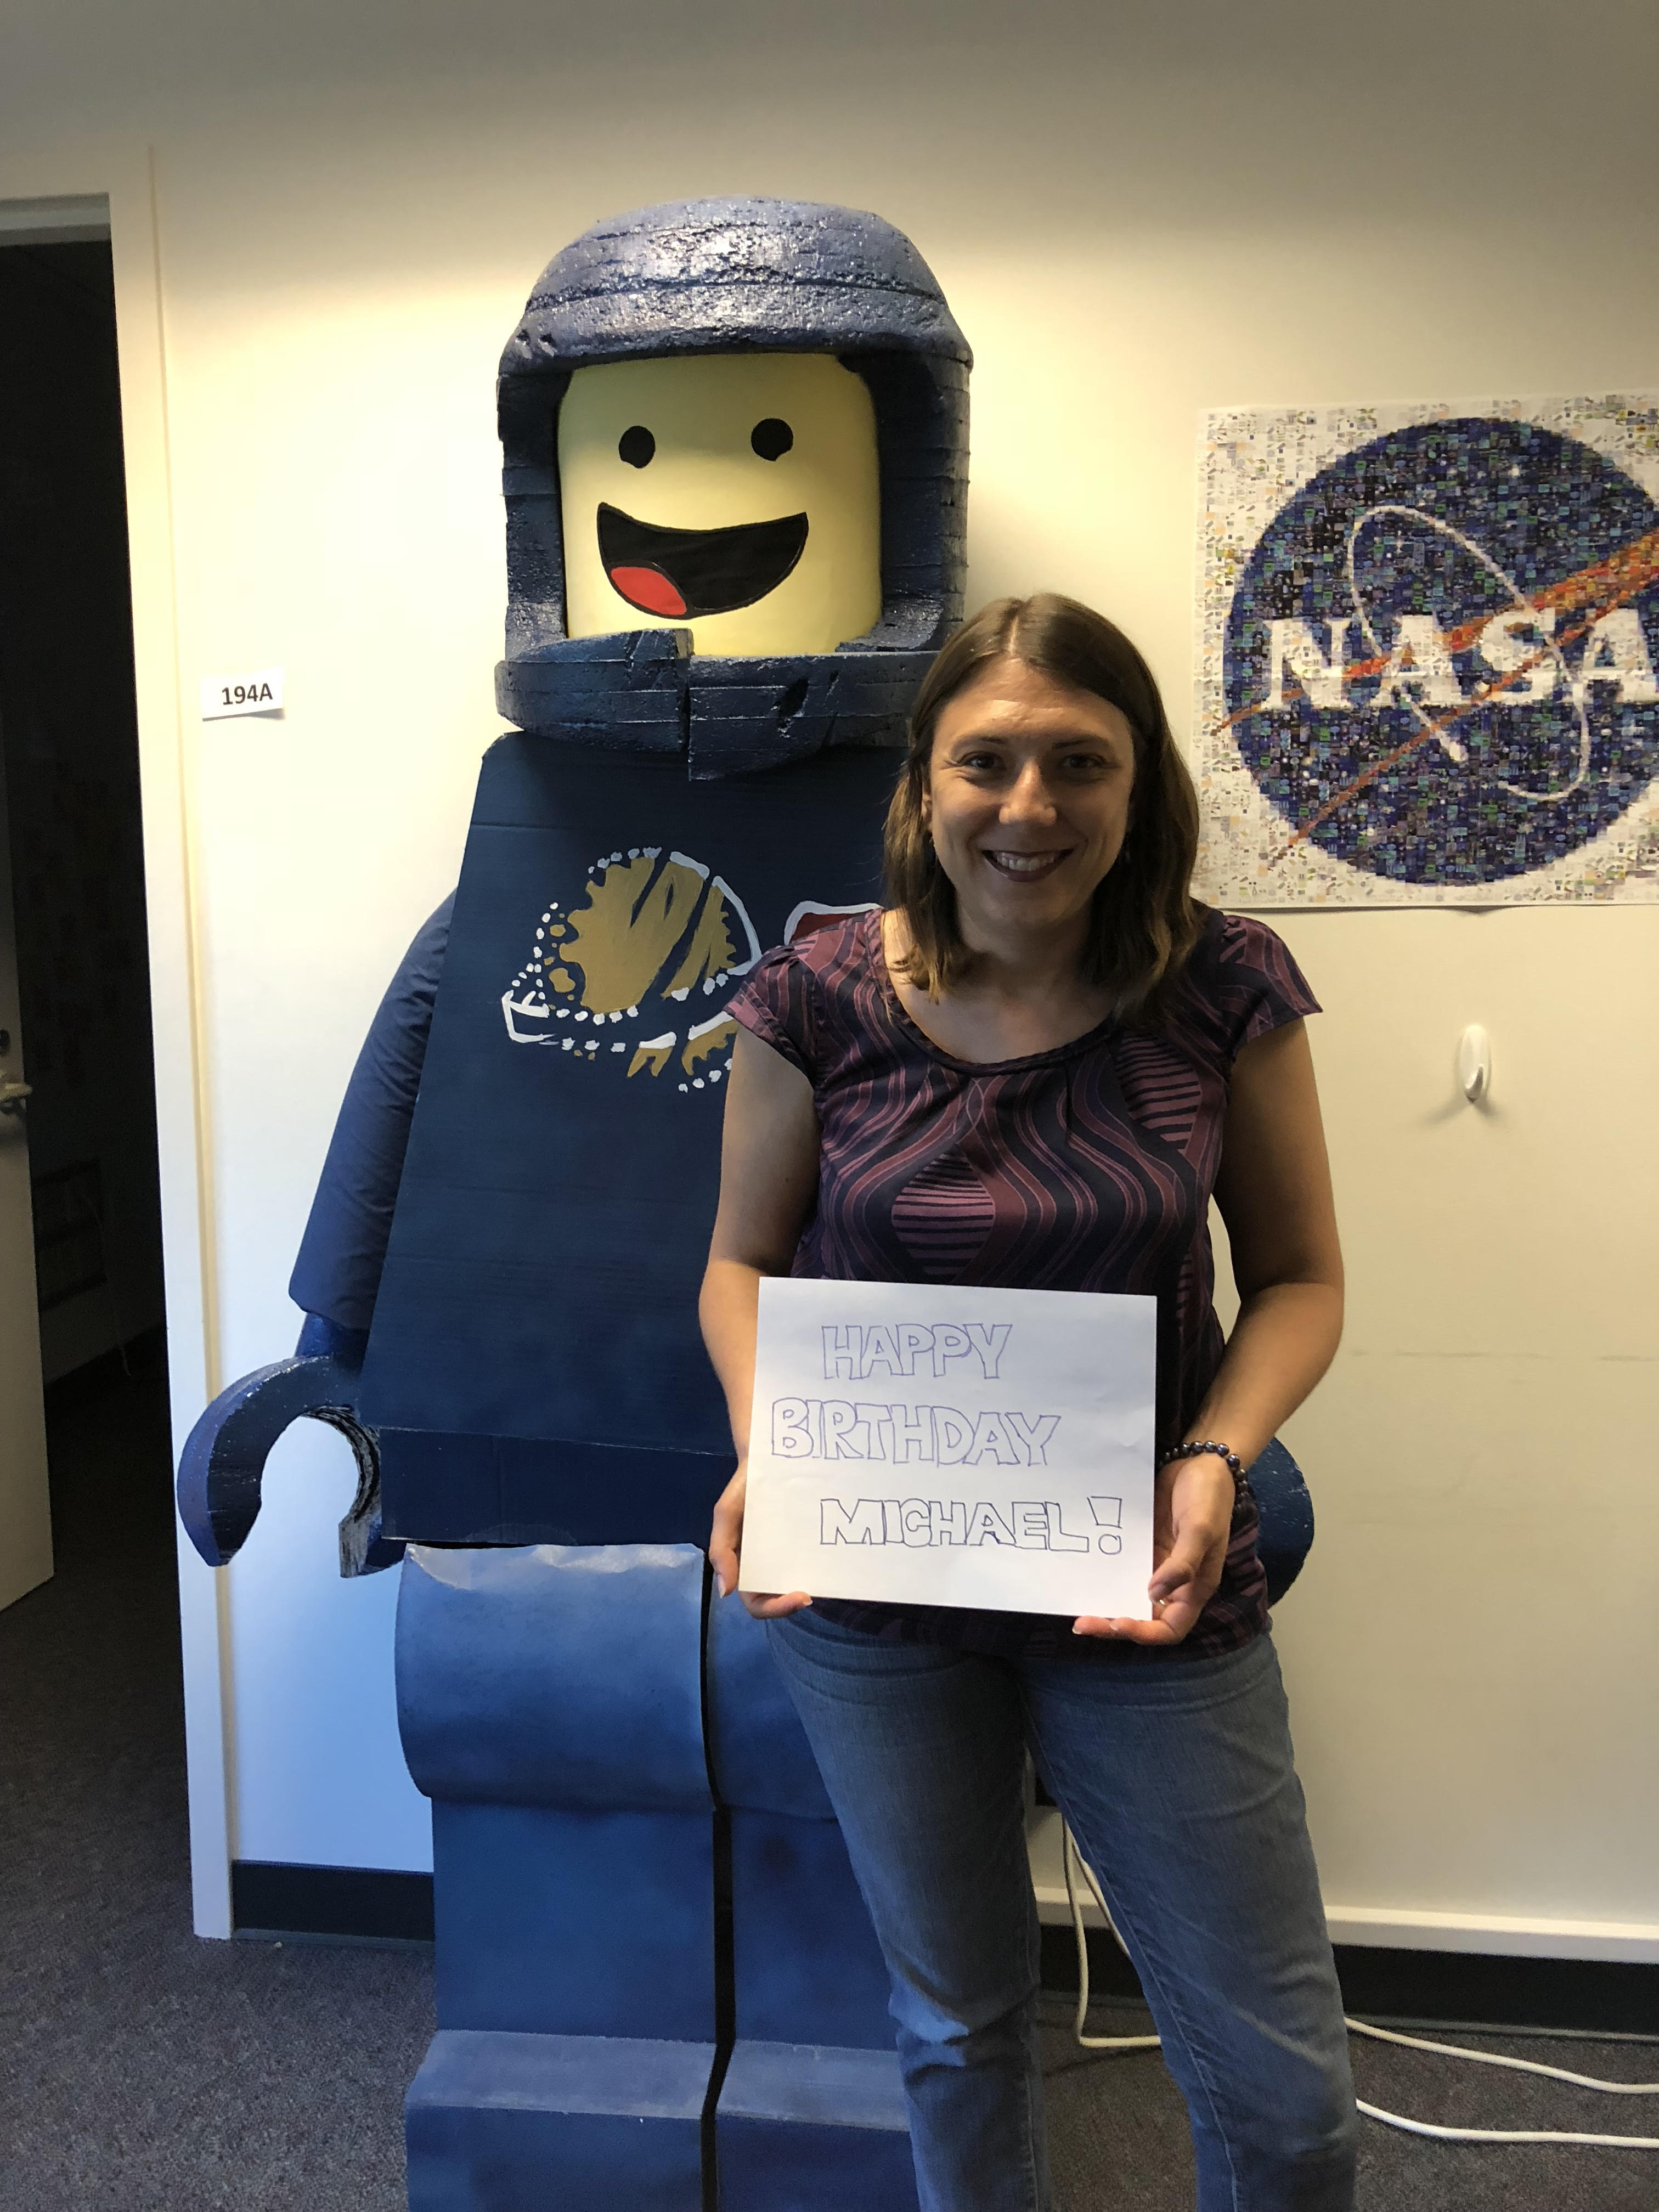 194A
NASA
HAPPY
BIRTHDAY
MICHAEL!